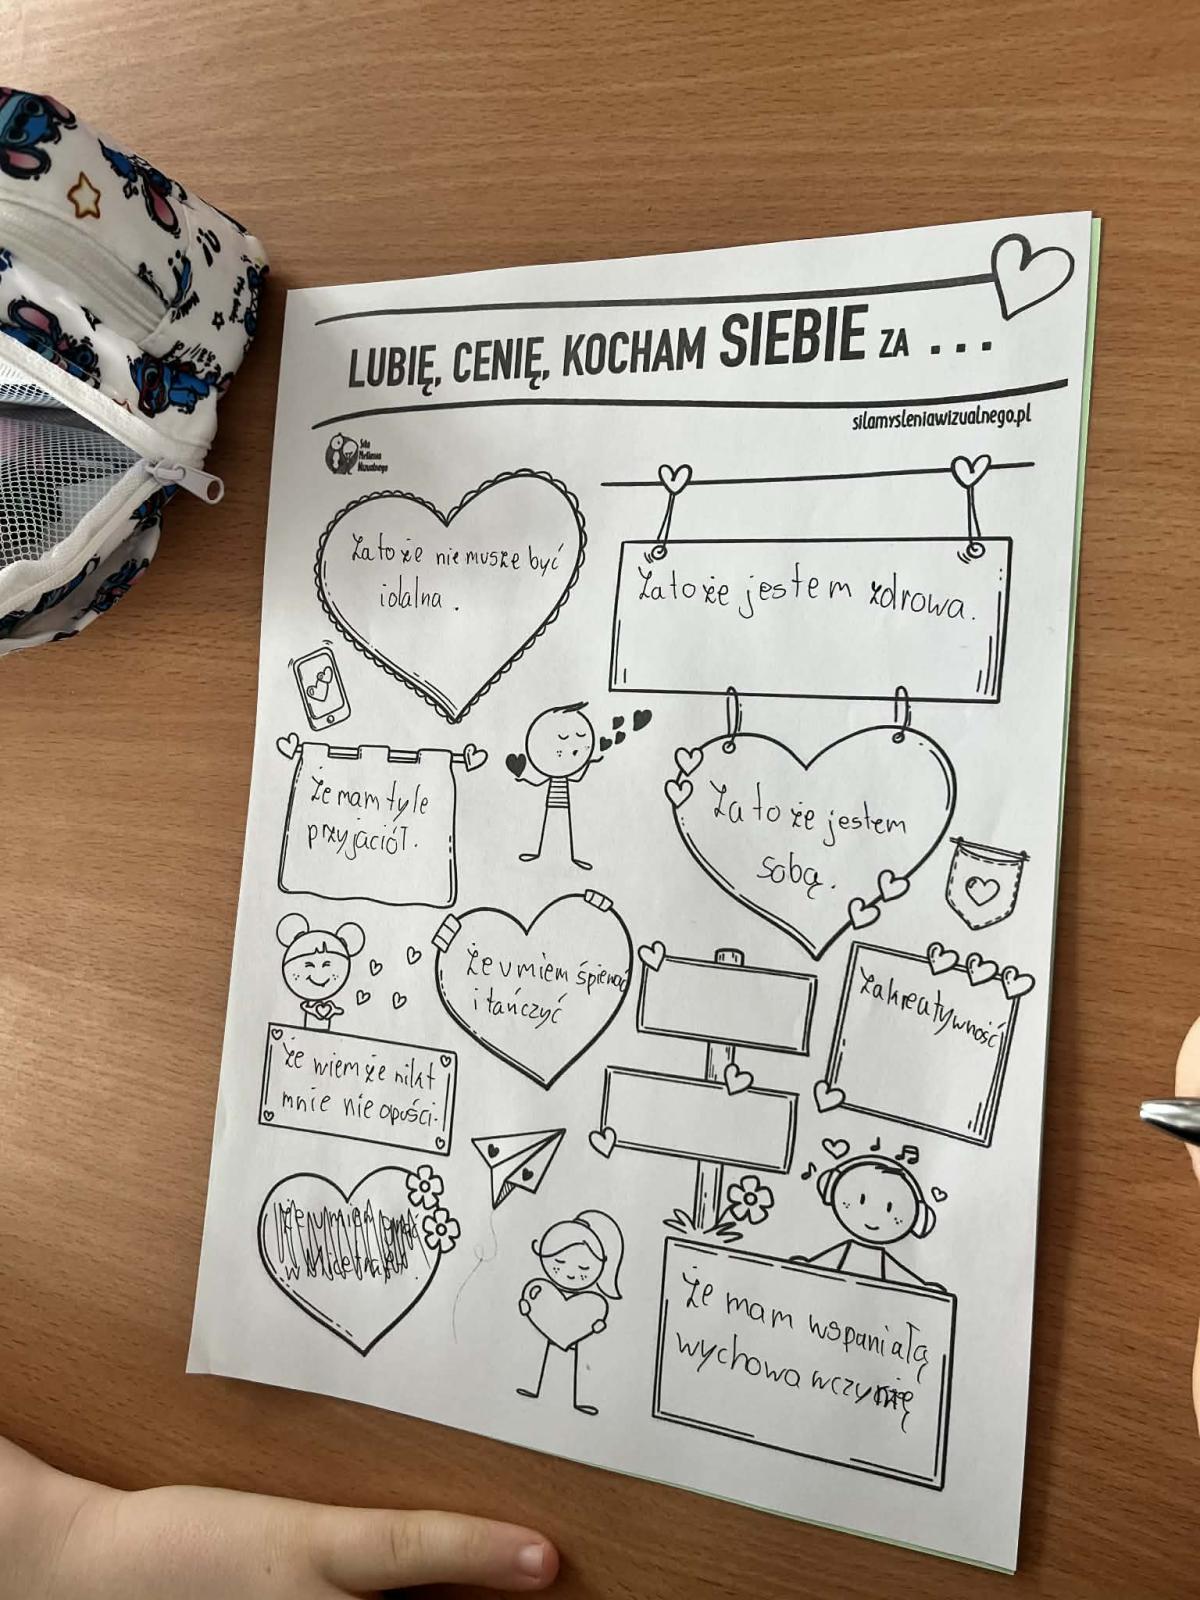 LUBIĘ, CENIĘ, KOCHAM SIEBIE ZA ...
silamysleniawizualnego.pl
Siła
Myślenia
Wizualnego
Za to że nie musze być
idalna.
Za to że jestem zdrowa.
Że mam tyle
przyjaciół.
Za to że jestem
sobą.
Że umiem śpiewać
i tańczyć
Za kreatywność
Że wiem że nikt
mnie nie opuści.
Że mam wspaniałą
wychowawczynię